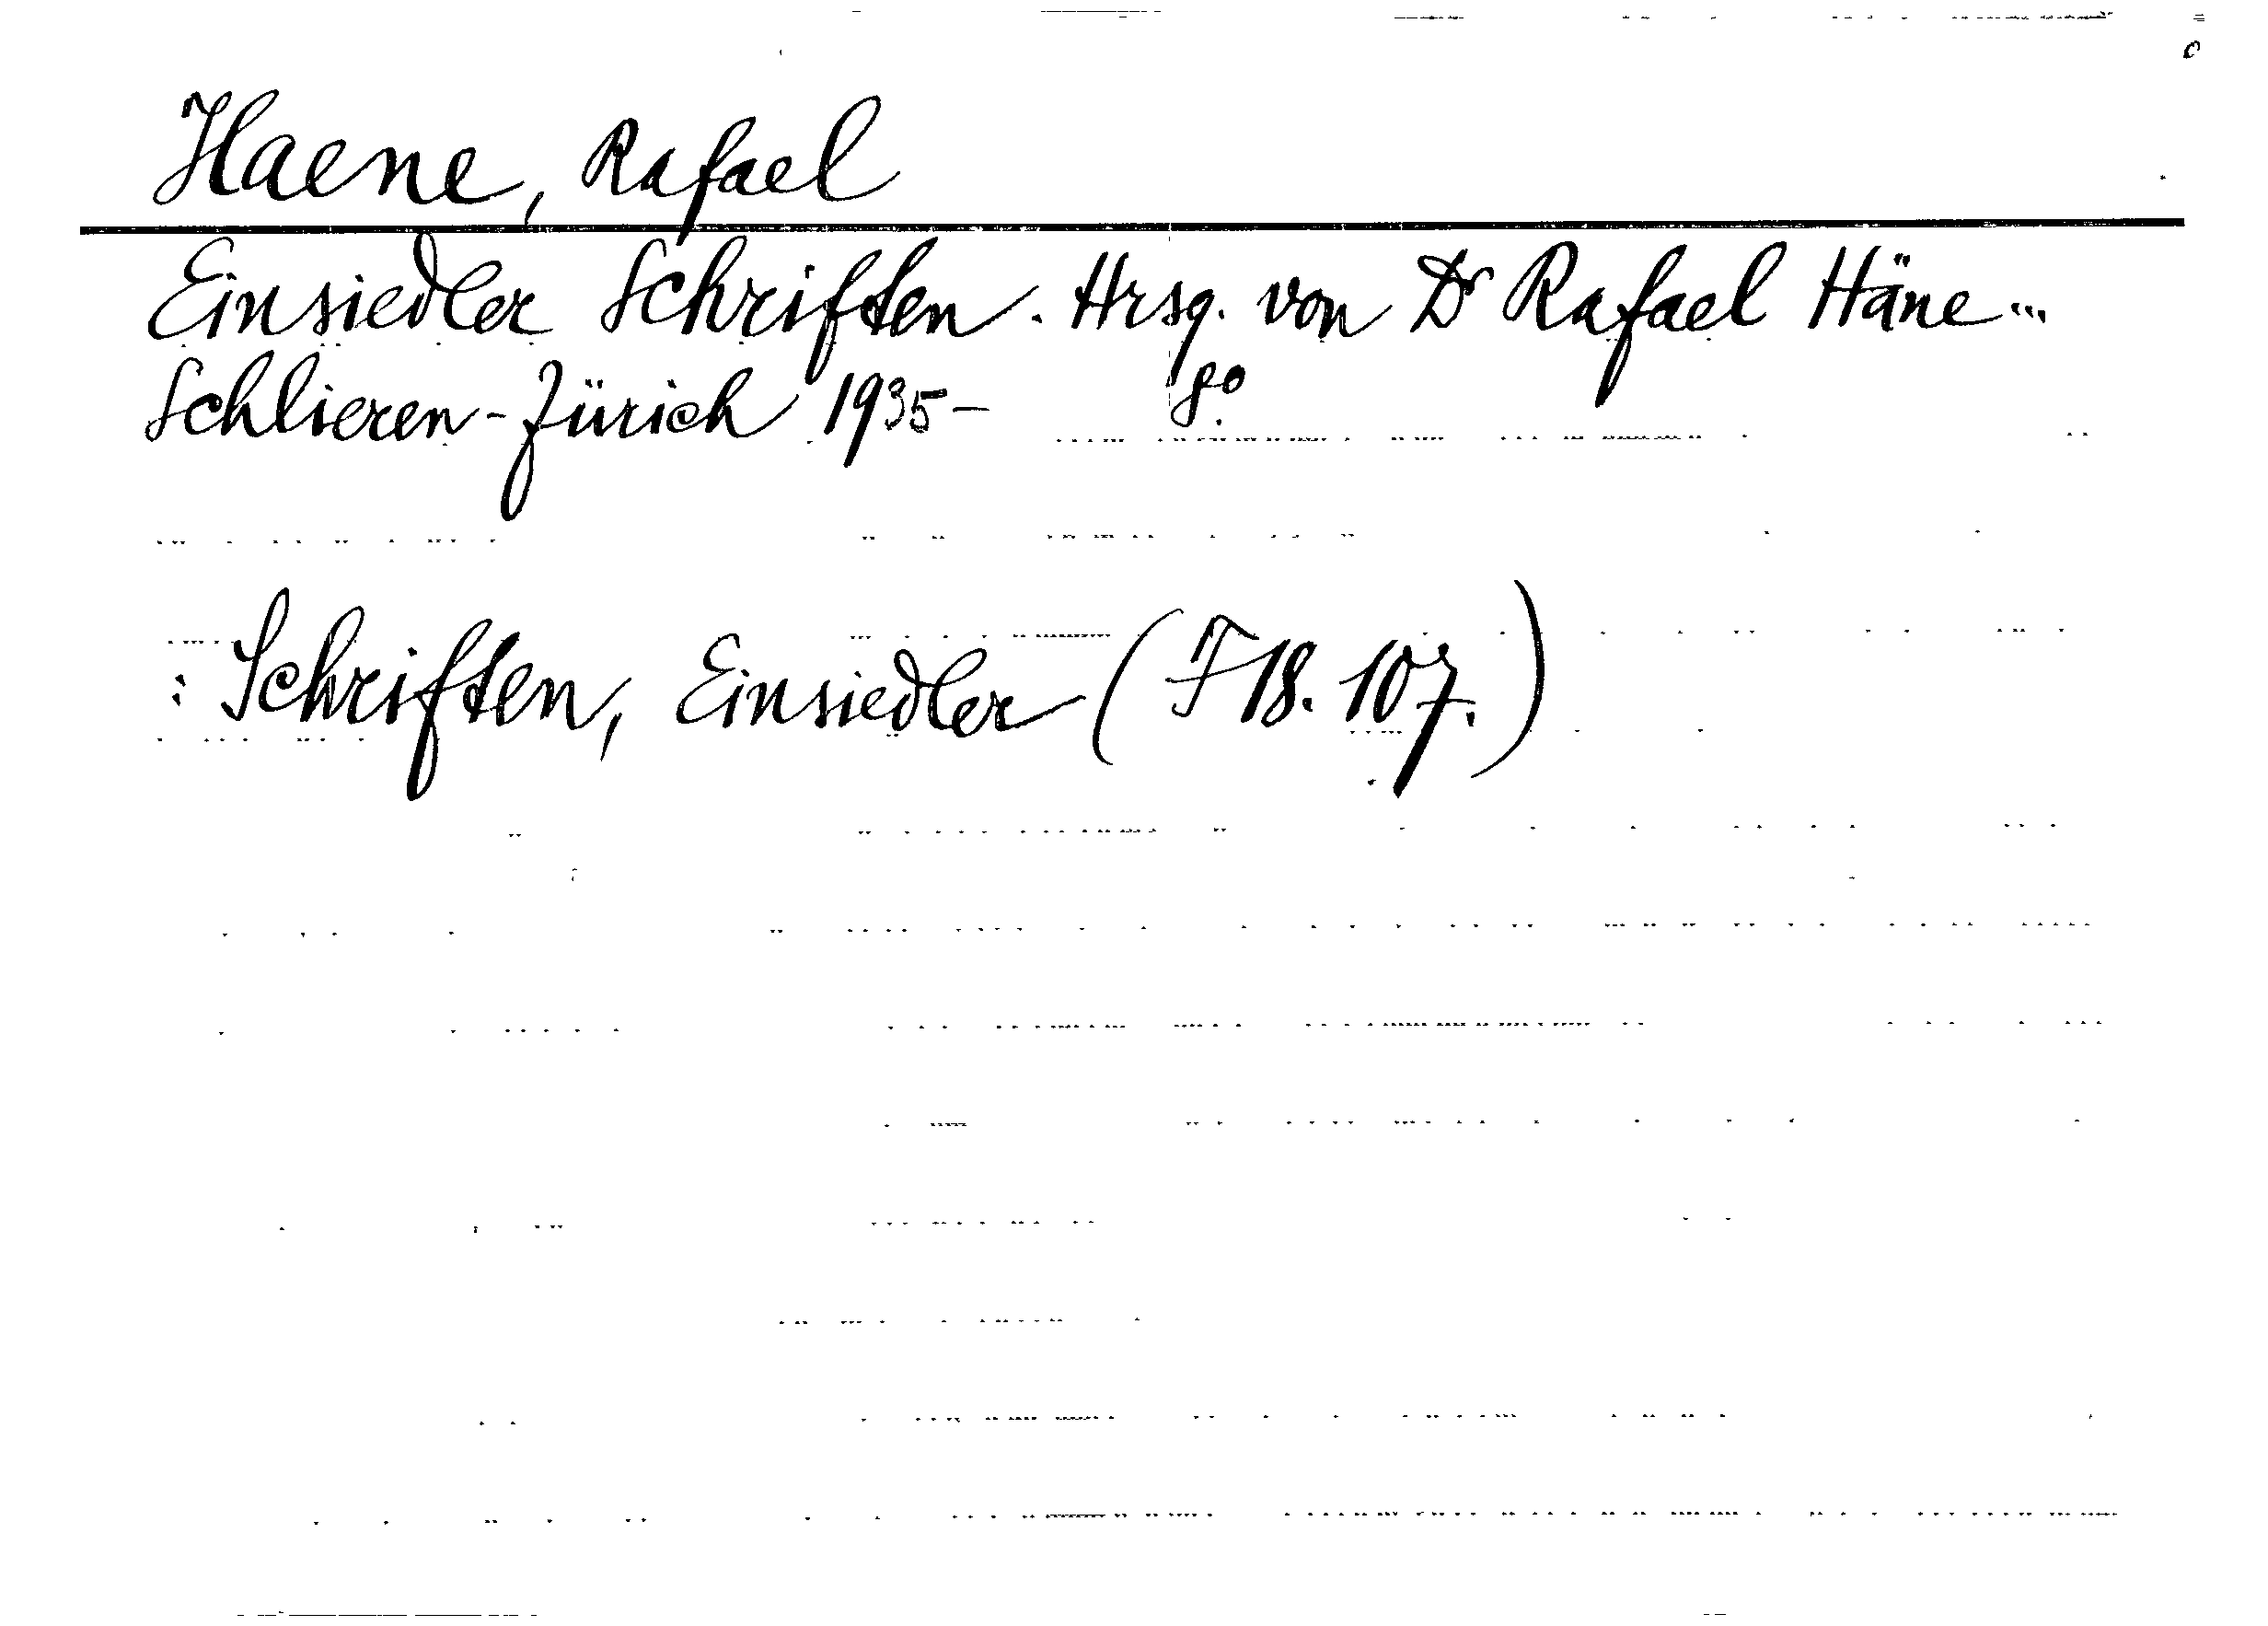 Haene, Rafael
Einsiedler Schriften. Hrsg. von Dr Rafael Häne...
Schlieren-Zürich 1935- 8º.
: Schriften, Einsiedler (F 18. 107.)